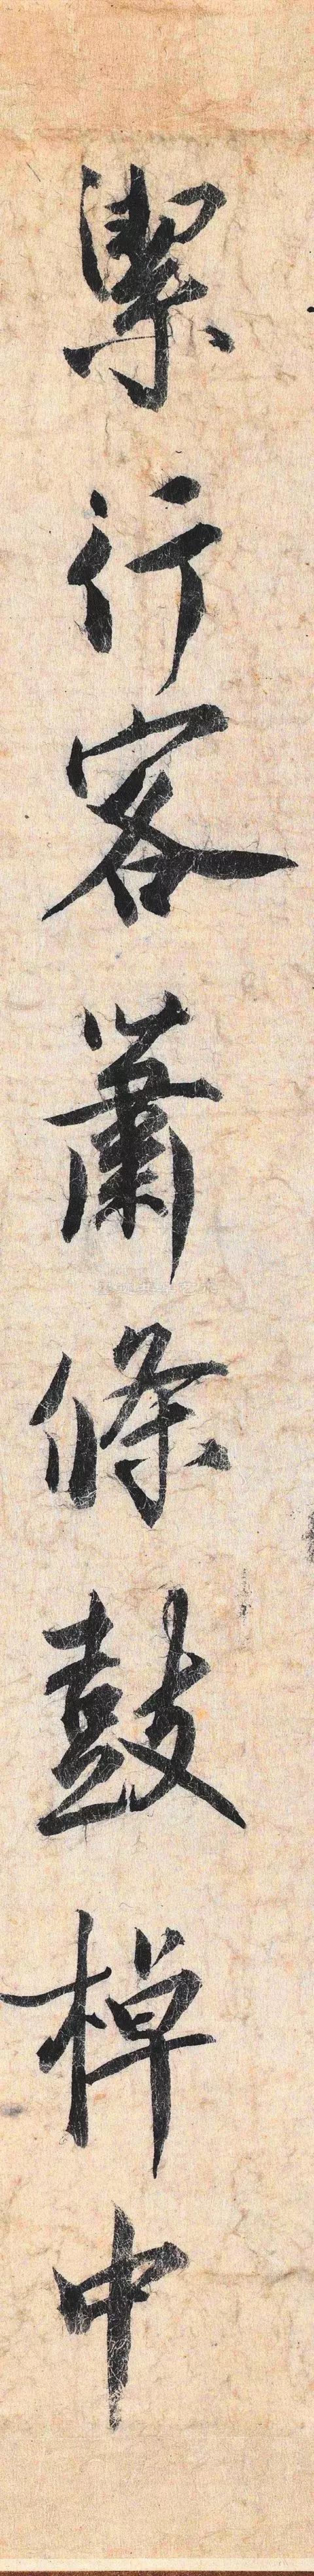 潔行客蕭條鼓棹中